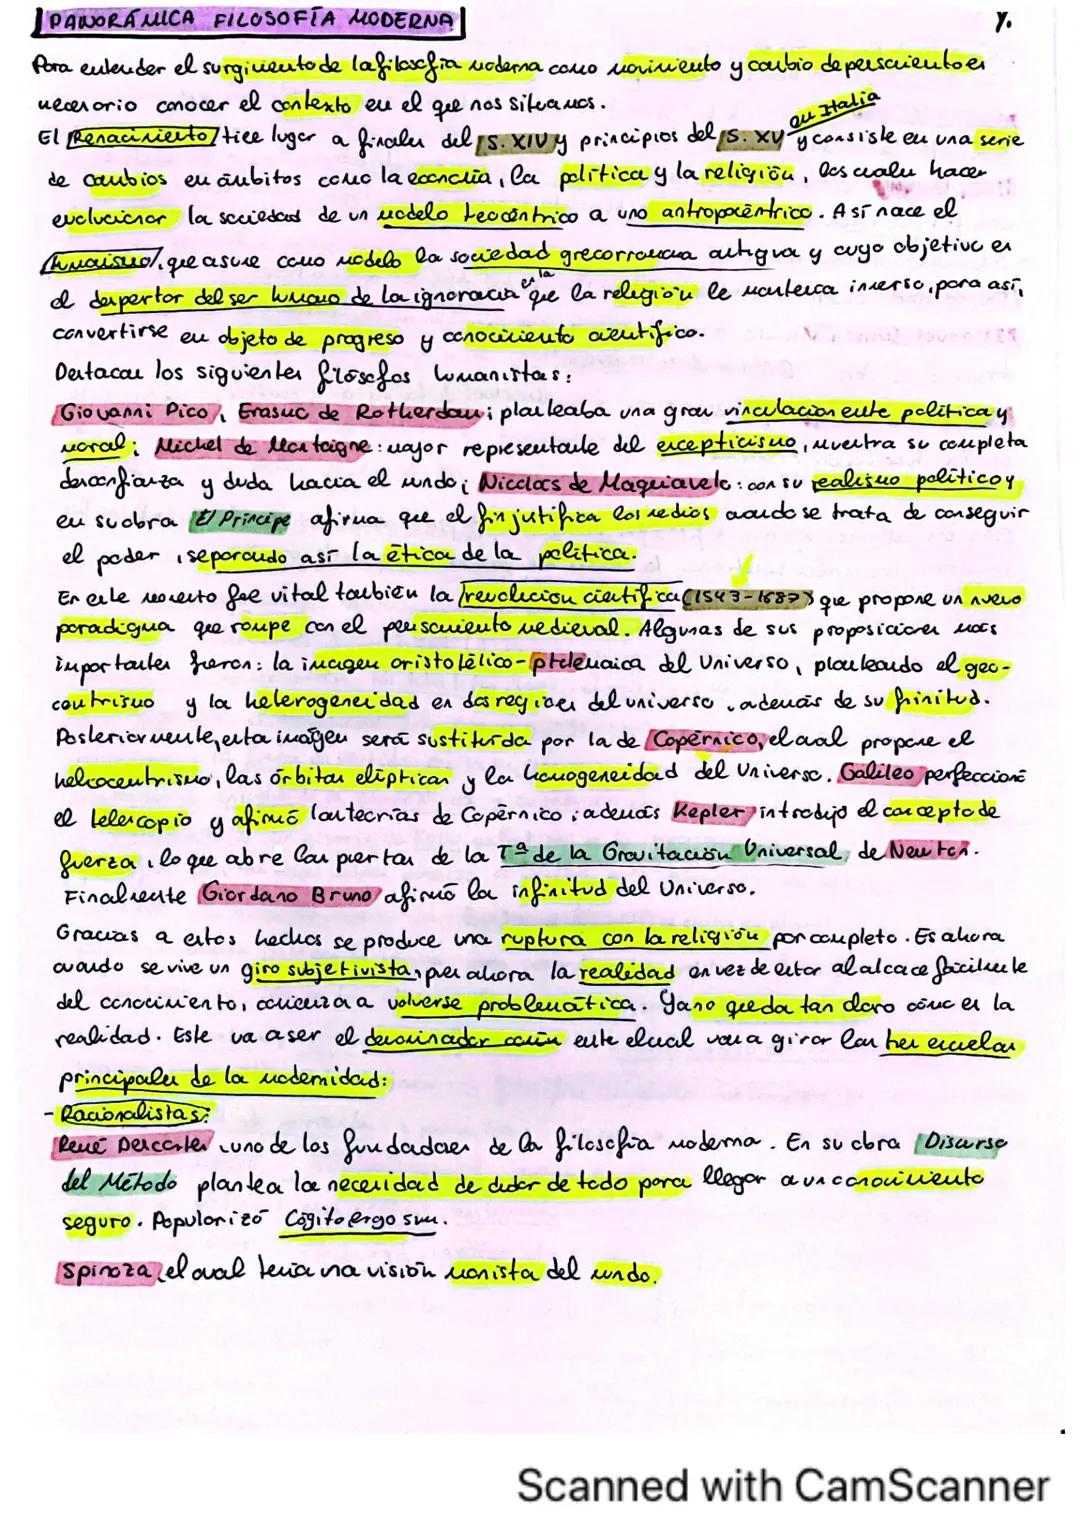 PANORÁMICA FILOSOFÍA MODERNA Y.
Para entender el surgimiento de la filosofía moderna como movimiento y cambio de pensamiento es
necesario conocer el contexto en el que nos situamos.
en Italia
El Renacimiento tiee lugar a finales del S. XIV y principios del S. XV y consiste en una serie
de cambios en ámbitos como la economía, la política y la religión, los cuales hacen
evolucionar la sociedad de un modelo teocéntrico a uno antropocéntrico. Así nace el
humanismo, que asume como modelo la sociedad grecorromana antigua y cuyo objetivo es
el despertar del ser humano de la ignorancia en la que la religión le mantenía inmerso, para así,
convertirse en objeto de progreso y conocimiento científico.
Destacan los siguientes filósofos humanistas:
Giovanni Pico, Erasmo de Rotherdam; planteaba una gran vinculación entre política y
moral; Michel de Montaigne: mayor representante del escepticismo, muestra su completa
desconfianza y duda hacia el mundo; Nicolás de Maquiavelo: con su realismo político y
en su obra El Príncipe afirma que el fin justifica los medios cuando se trata de conseguir
el poder, separando así la ética de la política.
En este momento fue vital también la revolución científica (1543-1687) que propone un nuevo
paradigma que rompe con el pensamiento medieval. Algunas de sus proposiciones más
importantes fueron: la imagen aristotélico-ptolemaica del Universo, planteando el geo-
centrismo y la heterogeneidad en dos regiones del universo, además de su finitud.
Posteriormente, esta imágen será sustituida por la de Copérnico, el cual propone el
heliocentrismo, las órbitas elípticas y la homogeneidad del Universo. Galileo perfeccionó
el telescopio y afirmó las teorías de Copérnico; además Kepler introdujo el concepto de
fuerza, lo que abre las puertas de la Tª de la Gravitación Universal, de Newton.
Finalmente Giordano Bruno afirmó la infinitud del Universo.
Gracias a estos hechos se produce una ruptura con la religión por completo. Es ahora
cuando se vive un giro subjetivista, pues ahora la realidad en vez de estar al alcance fácilmente
del conocimiento, comienza a volverse problemática. Ya no queda tan claro cómo es la
realidad. Este va a ser el denominador común ente el cual van a girar las tres escuelas
principales de la modernidad:
- Racionalistas:
René Descartes, uno de los fundadores de la filosofía moderna. En su obra Discurso
del Método plantea la necesidad de dudar de todo para llegar a un conocimiento
seguro. Popularizó Cógito ergo sum.
Spinoza, el cual tenía una visión monista del mundo.
Scanned with CamScanner